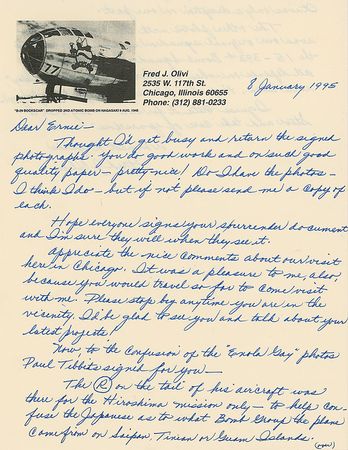 77
"B-29 BOCKSCAR" DROPPED 2ND ATOMIC BOMB ON NAGASAKI 9 AUG. 1945
Fred J. Olivi
2535 W. 117th St.
Chicago, Illinois 60655
Phone: (312) 881-0233
8 January 1995
Dear Ernie—
Thought I'd get busy and return the signed
photographs. You do good work and on such good
quality paper—pretty nice! Do I have the photos—
I think I do—but if not please send me a copy of
each.
Hope everyone signs your surrender document
and I'm sure they will when they see it.
Appreciate the nice comments about our visit
here in Chicago. It was a pleasure to me, also,
because you would travel so far to come visit
with me. Please stop by anytime you are in the
vicinity. I'd be glad to see you and talk about your
latest projects!
Now, to the confusion of the "Enola Gay" photos
Paul Tibbits signed for you—
The R on the tail of his aircraft was
there for the Hiroshima mission only—to help con-
fuse the Japanese as to what Bomb Group the plane
came from on Saipan, Tinian or Guam Islands.
(over)